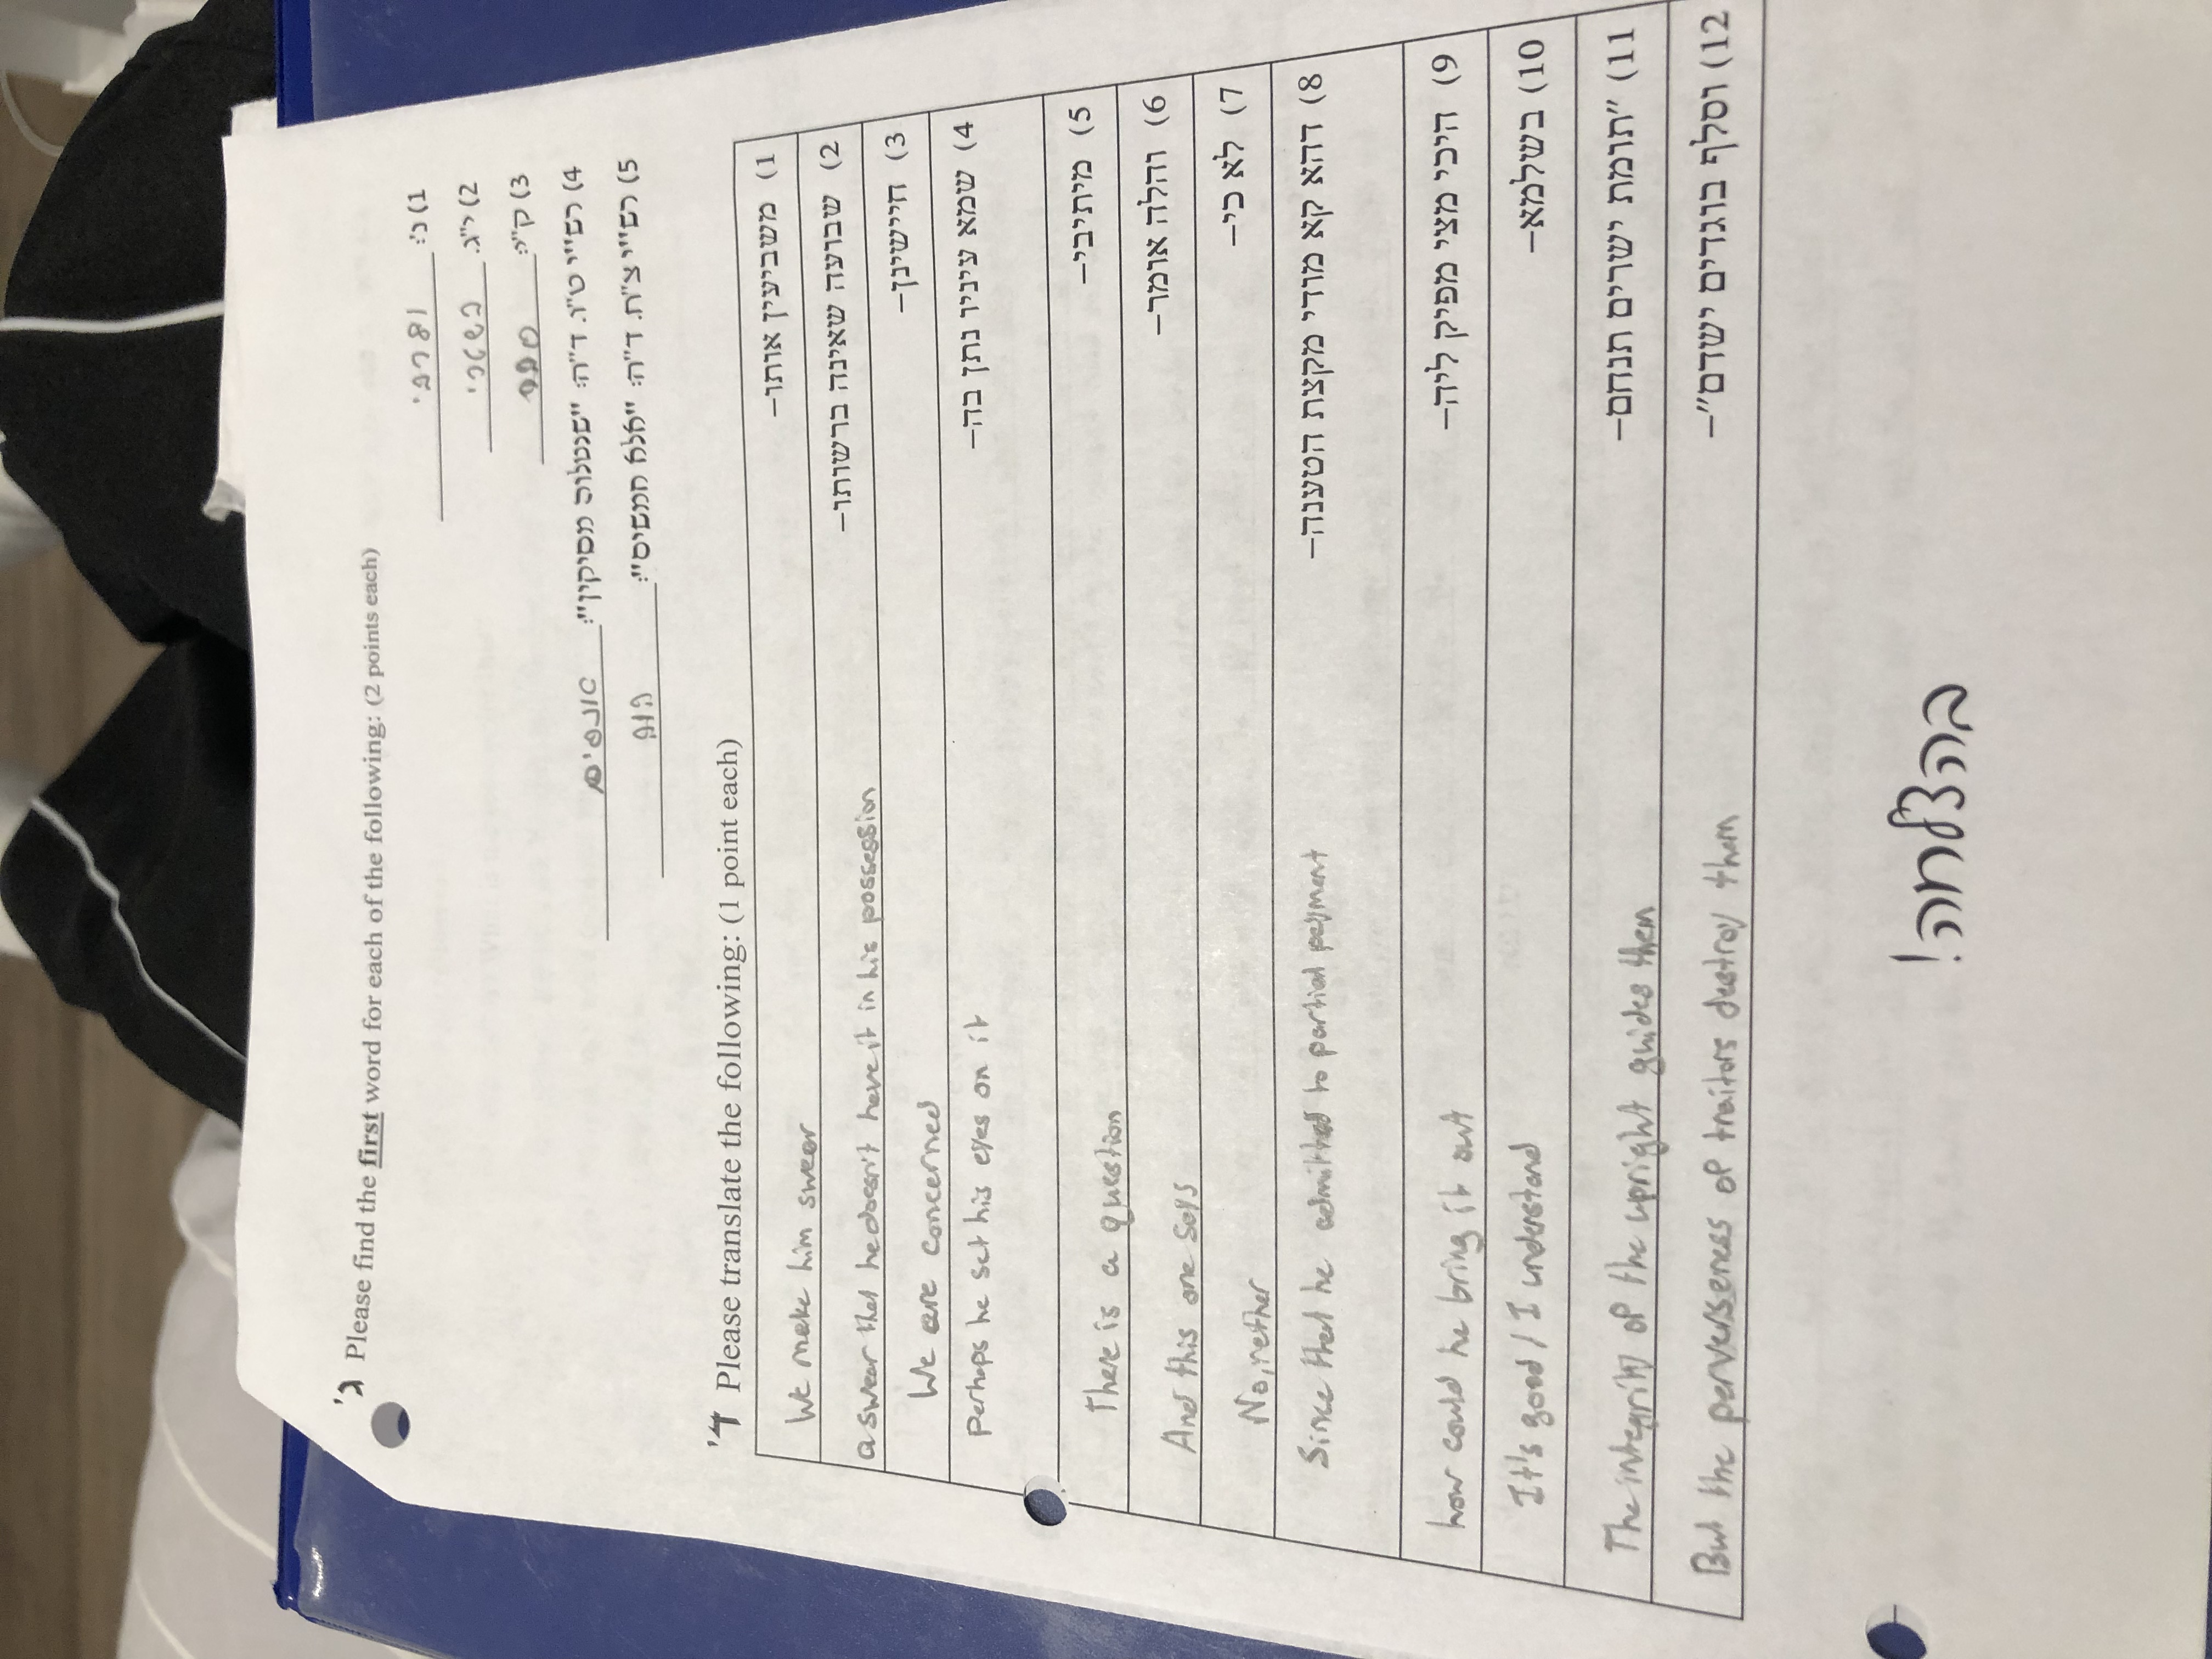 ג' Please find the first word for each of the following: (2 points each)
1) נ':
2) י"ג. בשטרי
3) ק"י: סבר
4) רש"י ט"ו. ד"ה: "שנטלוה מסיקין": אנסים
5) רש"י צ"ח. ד"ה: "אלא חמשים":
ד' Please translate the following: (1 point each)
1) משביעין אותו–
We make him swear
2) שבועה שאינה ברשותו–
a swear that he doesn't have it in his possession
3) חיישינן–
We are concerned
4) שמא עיניו נתן בה–
Perhaps he set his eyes on it
5) מיתיבי–
There is a question
6) והלה אומר–
And this one says
7) לא כי–
No, rether
8) דהא קא מודי מקצת הטענה–
Since that he admitted to partial payment
9) היכי מצי מפיק ליה–
how could he bring it out
10) בשלמא–
It's good / I understand
11) "תומת ישרים תנחם–
The integrity of the upright guides them
12) וסלף בוגדים ישדם"–
But the perverseness of traitors destroy them
בהצלחה!